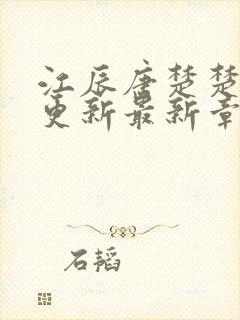 江辰唐楚楚
更新最新章
石韬